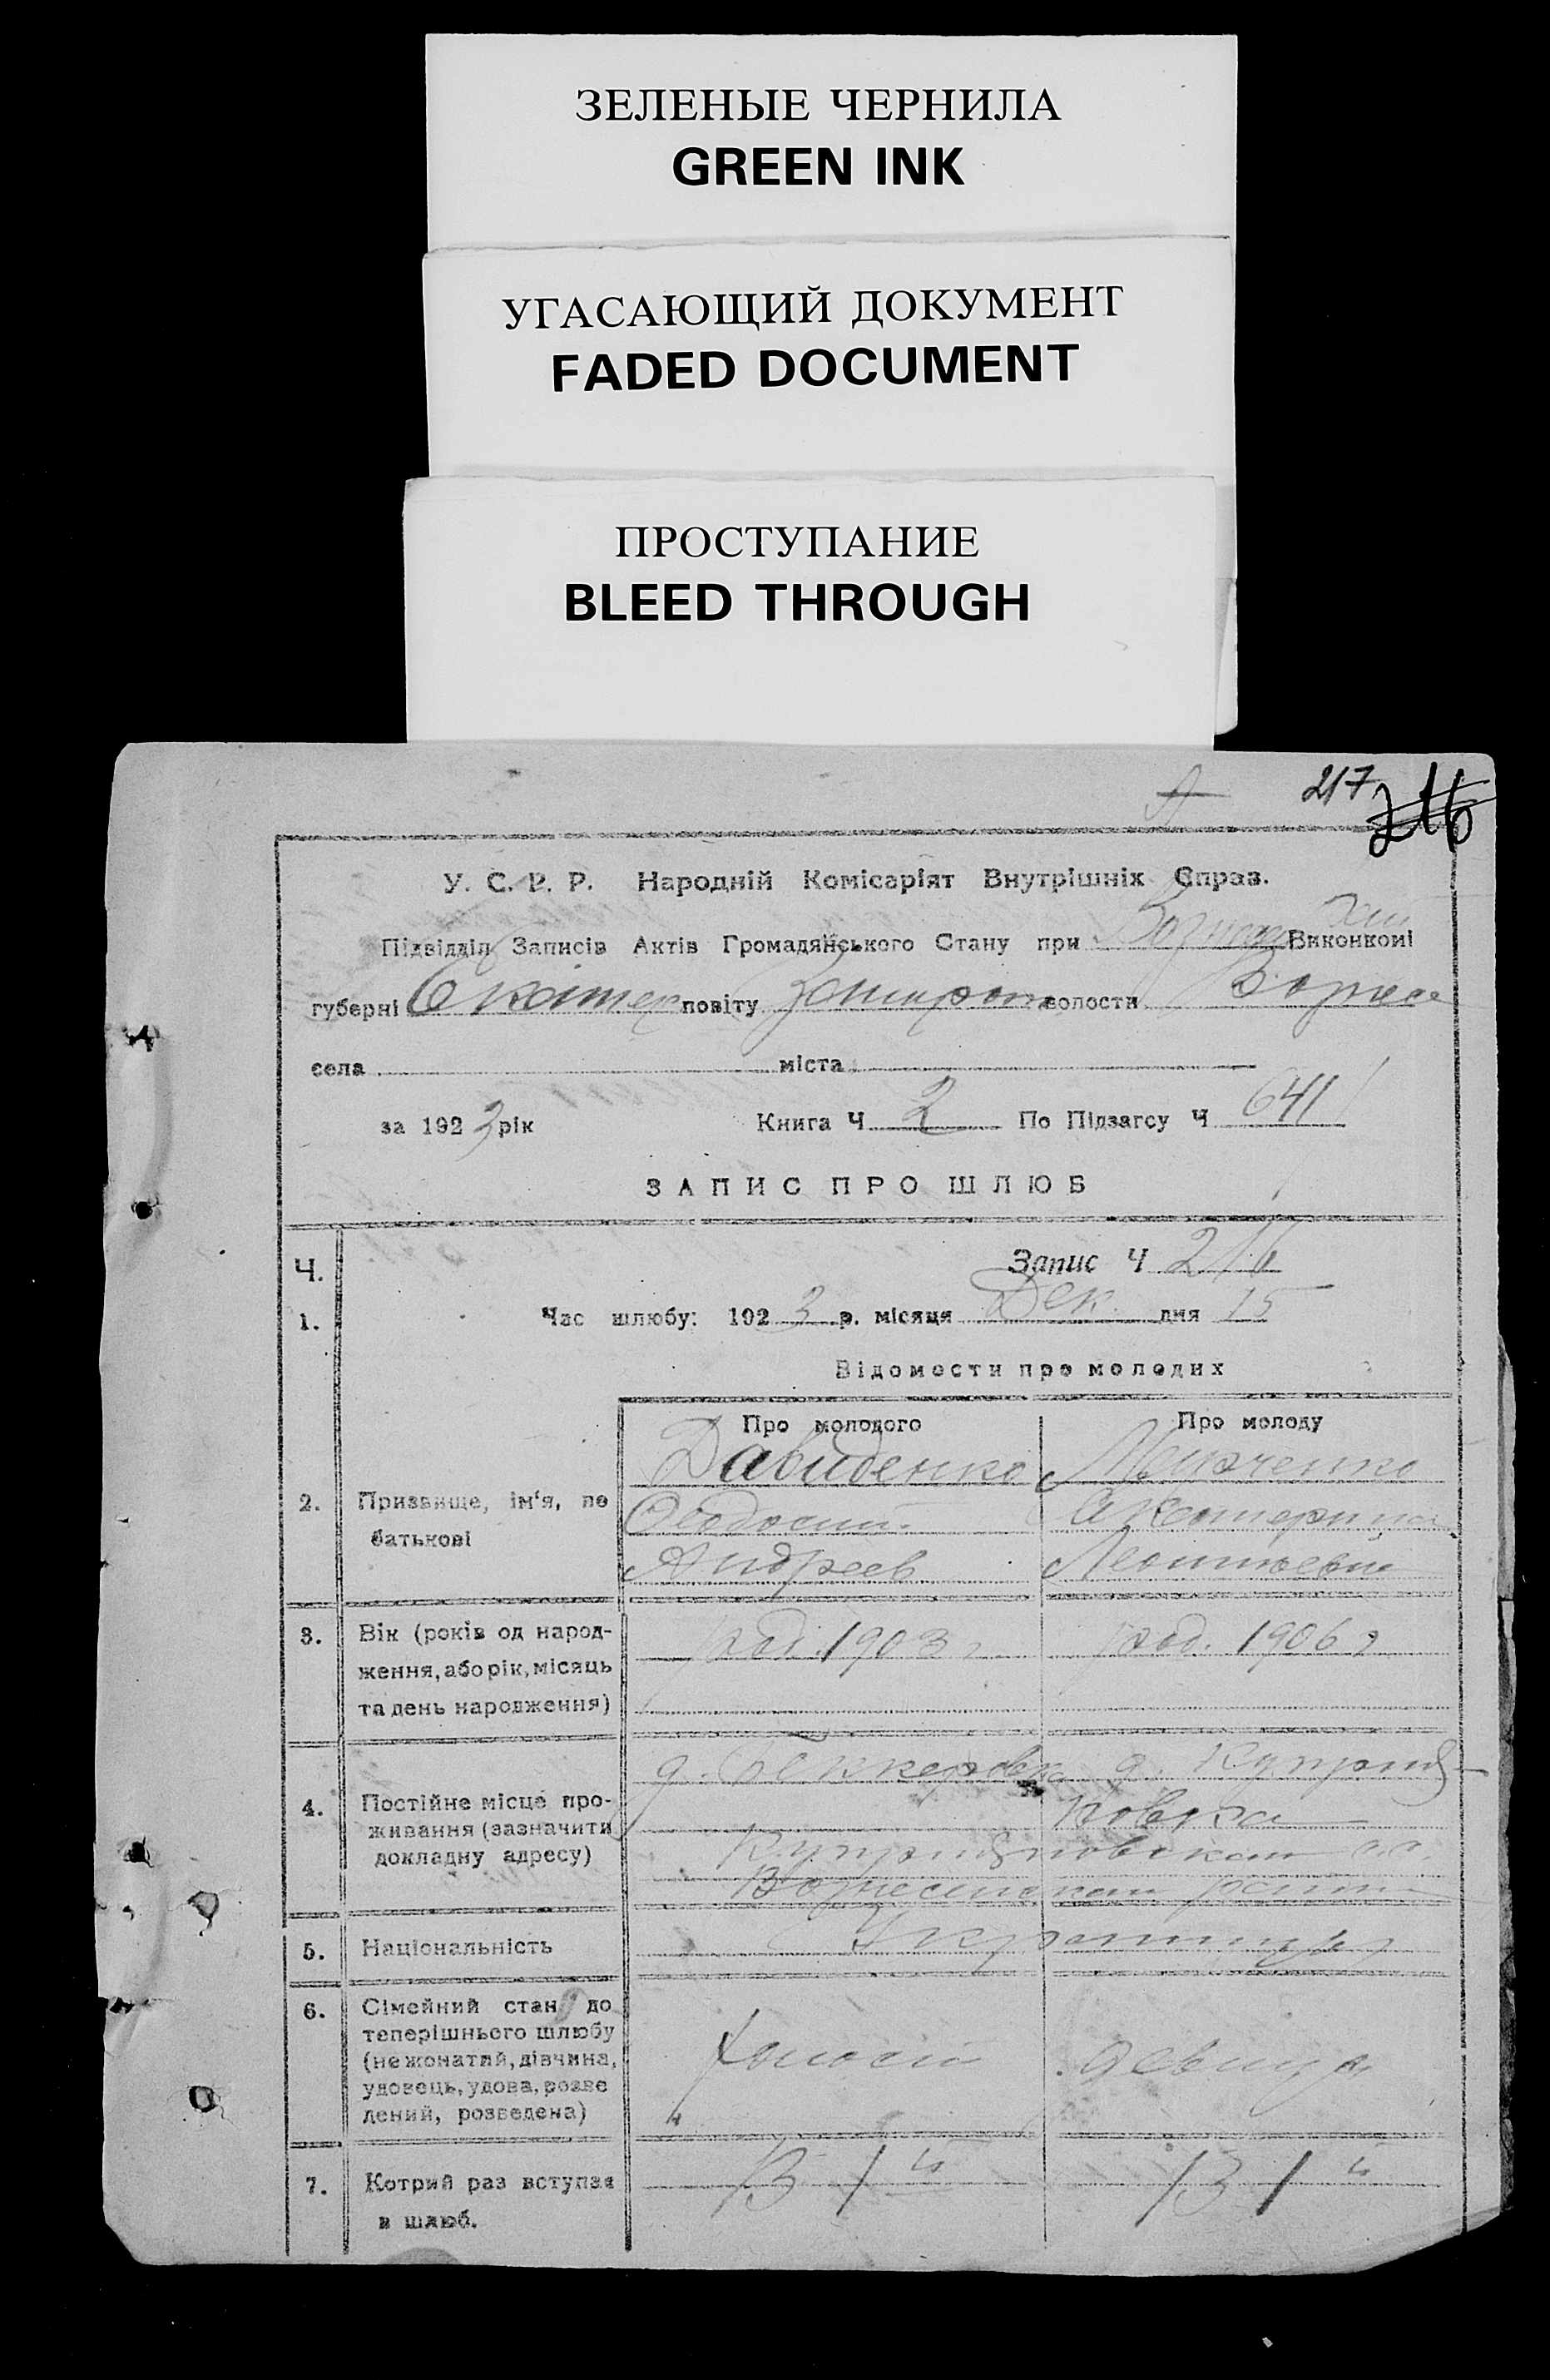 ЗЕЛЕНЫЕ ЧЕРНИЛА
GREEN INK
УГАСАЮЩИЙ ДОКУМЕНТ
FADED DOCUMENT
ПРОСТУПАНИЕ
BLEED THROUGH
217
216
У. С. Р. Р. Народній Комісаріят Внутрішніх Справ.
Підвідділ Записів Актів Громадянського Стану при Виконкомі
губерні Екатер повіту Запорож волости Вознесе
села міста
за 1923 рік Книга Ч 2 По Підзагсу Ч 641
ЗАПИС ПРО ШЛЮБ
Ч. Запис Ч 216
1. Час шлюбу: 1923 р. місяця Дек. дня 15
Відомости про молодих
Про молодого Про молоду
Давиденко
2. Призвище, ім'я, по батькові
Феодосий Екатерина
Андреев Леонтьевна
3. Вік (років од народ-
ження, або рік, місяць
та день народження)
род. 1903 г род. 1906 г
4. Постійне місце про-
живання (зазначити
докладну адресу)
д. д. Куприя-
новка
Куприяновской с.с.
Вознесенской
5. Національність Украинцы
6. Сімейний стан до
теперішнього шлюбу
(нежонатий, дівчина,
удовець, удова, розве
дений, розведена)
Холост девица
7. Котрий раз вступає
в шлюб.
В 1й В 1й